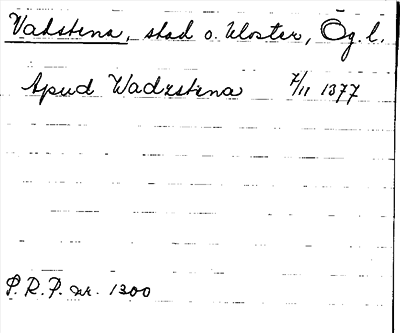 Vadstena, stad o. kloster, Ög. l.
Apud Wadzstena 7/11 1377
P.R.P. nr. 1300